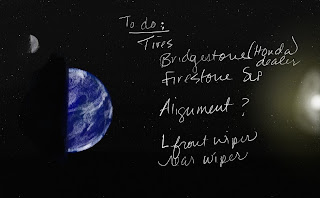 To do:
Tires
Bridgestone (Honda
dealer
Firestone SLP
Alignment ?
L front wiper
rear wiper